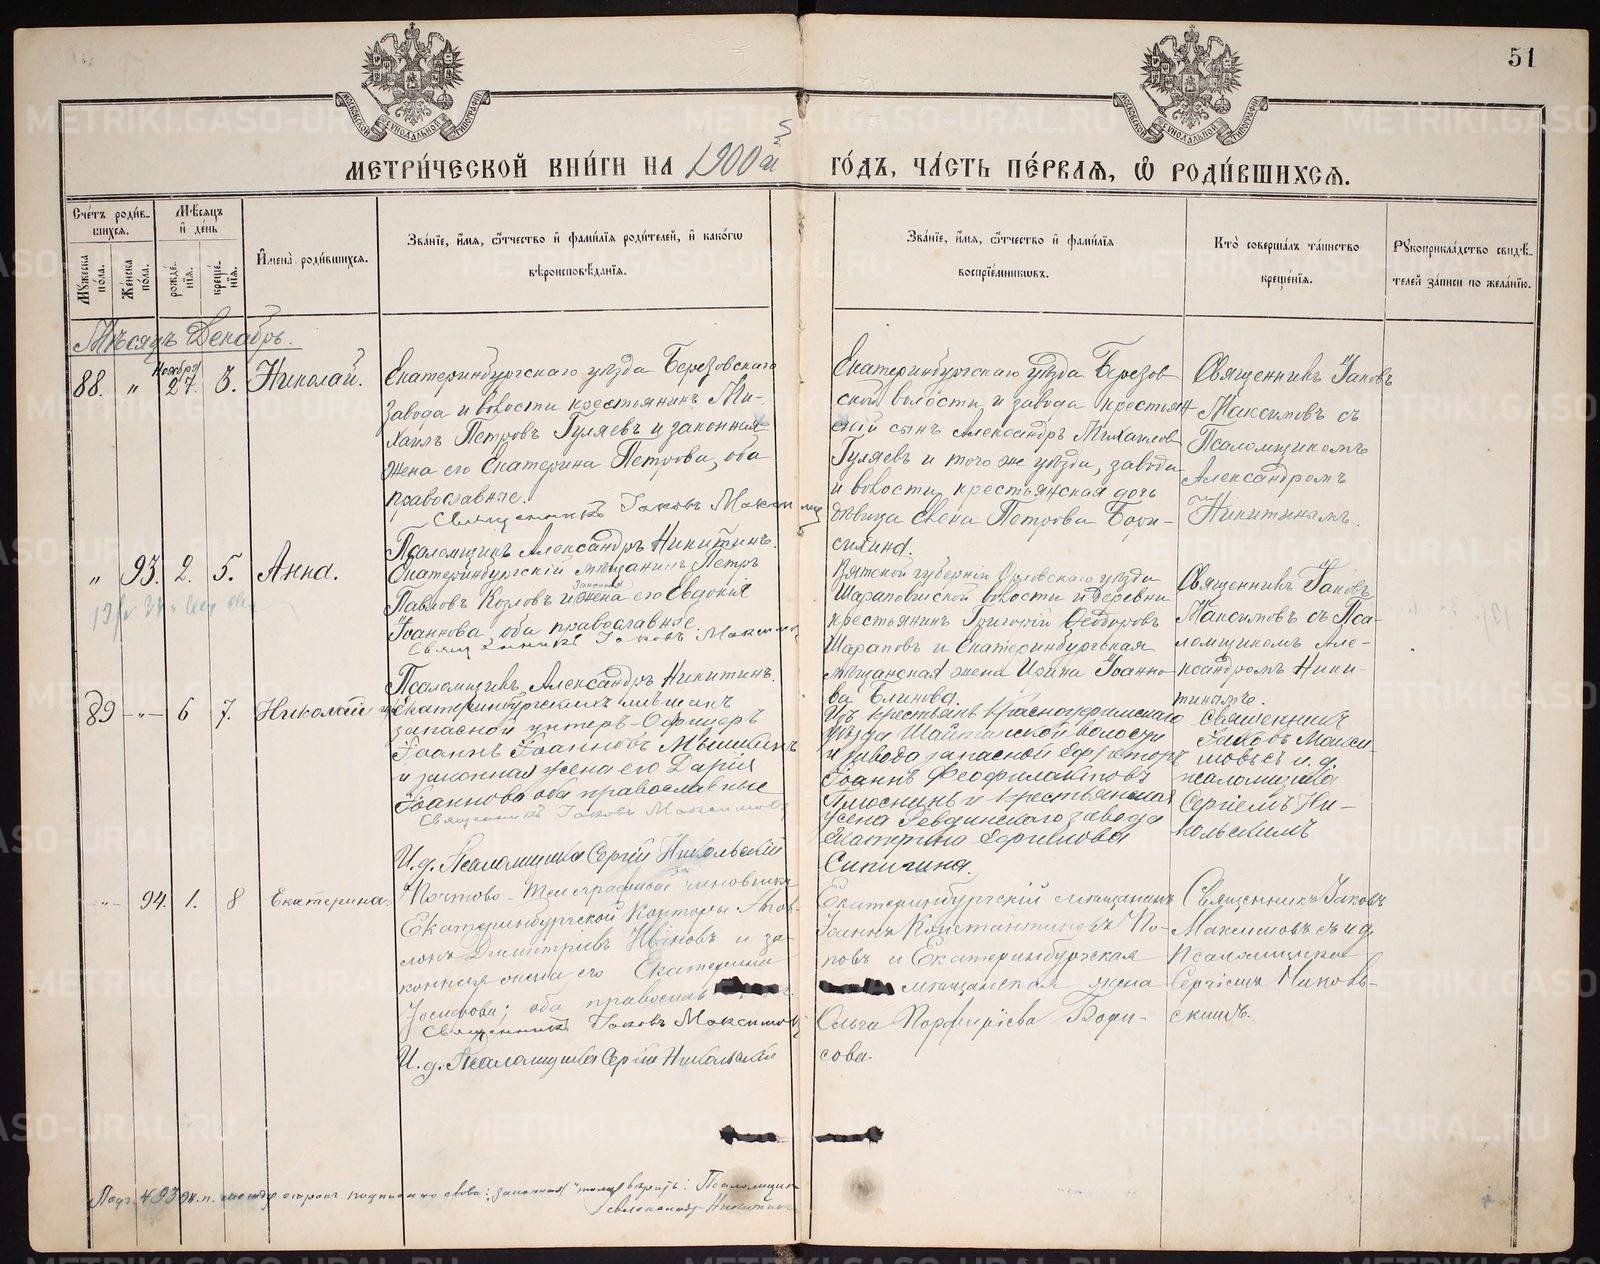 51
МОСКОВСКОЙ СѴНОДАЛЬНОЙ ТИПОГРАФІИ
МОСКОВСКОЙ СѴНОДАЛЬНОЙ ТИПОГРАФІИ
МЕТРИ́ЧЕСКОЙ КНИ́ГИ НА 1900 й
ГО́ДЪ, ЧА́СТЬ ПЕ́РВАѦ, Ѽ РОДИ́ВШИХСѦ.
Сче́тъ роди́в-
шихся.
Му́жеска по́ла.
Же́нска по́ла.
Мѣ́сяцъ
и҆ де́нь
рожде́-
нїѧ.
креще́-
нїѧ.
И҆мена̀ роди́вшихсѧ.
Зва́нїе, и҆́мѧ, ѻ҆́тчество и҆ фами́лїѧ роди́телей, и҆ како́гѡ
вѣроисповѣ́данїѧ.
Зва́нїе, и҆́мѧ, ѻ҆́тчество и҆ фами́лїѧ
воспрїе́мникѡвъ.
Кто̀ соверша́лъ та́инство
креще́нїѧ.
Рꙋкоприкла́дство свидѣ́-
телей за́писи по жела́нїю.
Мѣсяцъ Декабрь.
88. " Ноября 27. 3. Николай.
Екатеринбургскаго уѣзда Березовскаго
завода и волости крестьянинъ Ми-
хаилъ Петровъ Гуляевъ и законная
жена его Екатерина Петрова, оба
православные.
Священникъ Іаковъ Максимов
Псаломщикъ Александръ Никитинъ.
Екатеринбургскаго уѣзда Березов-
ской волости и завода крестьян-
скій сынъ Александръ Михаиловъ
Гуляевъ и того же уѣзда, завода
и волости крестьянская дочь
дѣвица Елена Петрова Бори-
сихина.
Священникъ Іаковъ
Максимовъ съ
Псаломщикомъ
Александромъ
Никитинымъ.
" 93. 2. 5. Анна.
Екатеринбургскій мѣщанинъ Петръ
Павловъ Козловъ и законная жена его Евдокія
Іоаннова, оба православные.
Священникъ Іаковъ Максимов
Псаломщикъ Александръ Никитинъ.
Вятской губерніи Орловскаго уѣзда
Шараповской волости и деревни
крестьянинъ Григорій Ѳеодоровъ
Шараповъ и Екатеринбургская
мѣщанская жена Ирина Іоанно-
ва Блинова.
Священникъ Іаковъ
Максимовъ съ Пса-
ломщикомъ Але-
ксандромъ Ники-
тинымъ.
89 — " — 6 7. Николай
изъ Екатеринбургскихъ мѣщанъ
запасной унтеръ-Офицеръ
Іоаннъ Іоанновъ Мышкинъ
и законная жена его Дарія
Іоаннова оба православные
Священникъ Іаковъ Максимовъ
И. д. Псаломщика Сергій Никольскій
Изъ крестьянъ Красноуфимскаго
уѣзда Шайтанской волости
и завода запасной Ефрейторъ
Іоаннъ Феофилактовъ
Плюснинъ и крестьянская
жена Ревдинскаго завода
Екатерина Ефимова
Сипигина.
Священникъ
Іаковъ Макси-
мовъ съ и. д.
псаломщика
Сергіемъ Ни-
кольскимъ
" — 94. 1. 8 Екатерина
Почтово-Телеграфный чиновникъ
Екатеринбургской Конторы
Димитріевъ Ивановъ и за-
конная жена его Екатерина
Іосифова; оба православ
Священникъ Іаковъ Максимов
И. д. Псаломщика Сергій Никольскій
Екатеринбургскій мѣщанинъ
Іоаннъ Константиновъ По-
повъ и Екатеринбургская
мѣщанская жена
Ольга Порфирьева Бори-
сова.
Священникъ Іаковъ
Максимовъ съ и д
Псаломщика
Сергіемъ Николь-
скимъ.
Подъ № 93 ж. п. между строкъ подписано слово: "законная" тому вѣрить: Псаломщикъ
Александръ Никитинъ